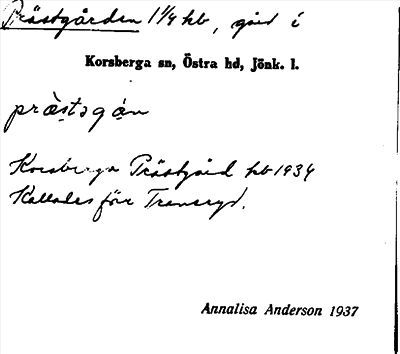 Prästgården 1 1/4 hb, gård i
Korsberga sn, Östra hd, Jönk. l.
prästgån
Korsberga Prästgård hb 1934
Kallades förr Transryd.
Annalisa Anderson 1937